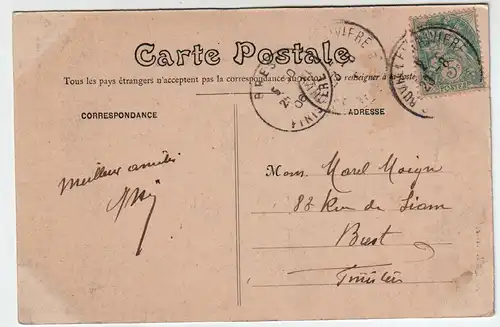 Carte Postale.
Tous les pays étrangers n'acceptent pas la correspondance au recto renseigner à la poste
CORRESPONDANCE
ADRESSE
BREST
FINISTERE
5
POSTES
Meilleur amitié
Mons Marel Moign
88 Rue de Siam
Brest
Finistère